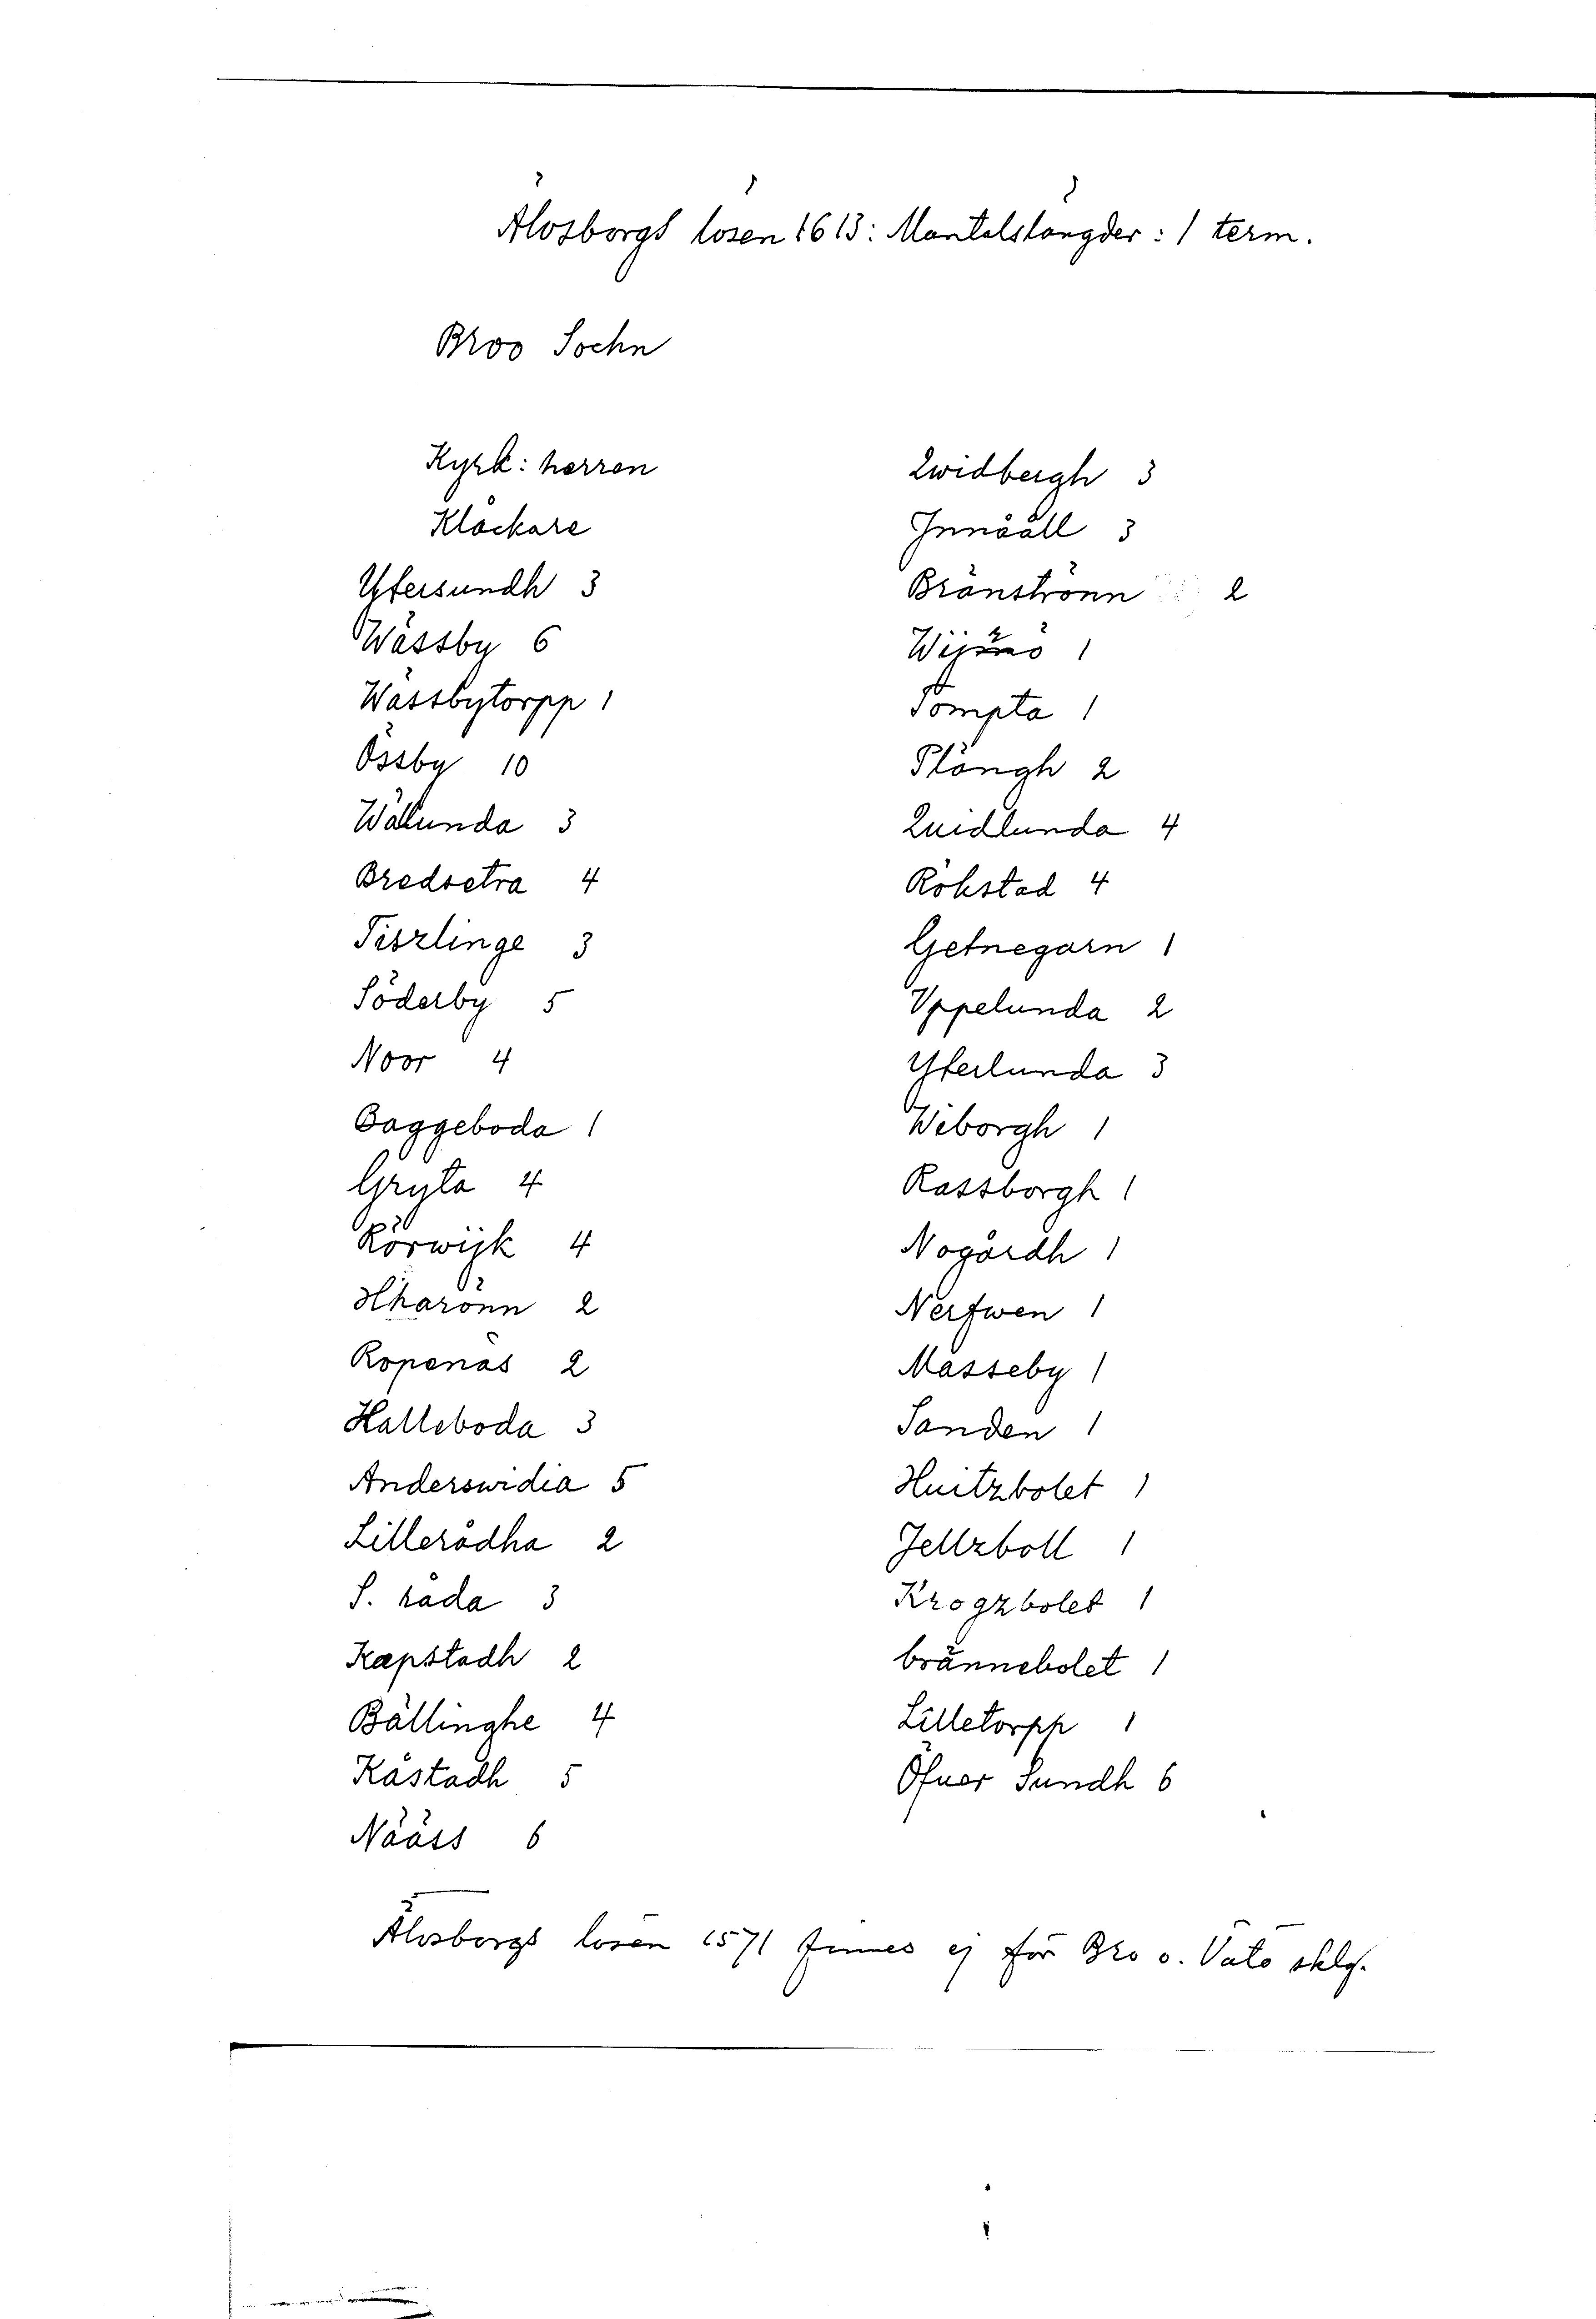 Älvsborgs lösen 1613: Mantalslängder: 1 term.
Broo Sochn
Kyrk: herren
Klåckare
Yfersundh 3
Wässby 6
Wässbytorpp 1
Össby 10
Wälunda 3
Bredsetra 4
Tiszlinge 3
Söderby 5
Noor 4
Baggeboda 1
Gryta 4
Rörwijk 4
Hharönn 2
Ropenäs 2
Halleboda 3
Anderswidia 5
Lillerådha 2
S. råda 3
Kapstadh 2
Bällinghe 4
Kåstadh 5
Nääss 6
Qwidbergh 3
Innåäll 3
Bränströnn 2
1
Tompta 1
Plöngh 2
Quidlunda 4
Rökstad 4
Getnegarn 1
Vppelunda 2
Yferlunda 3
Wiborgh 1
Rassborgh 1
Nogårdh 1
Nerfwen 1
Måsseby 1
Sanden 1
Huitzbolet 1
Jellzboll 1
Krogzbolet 1
brännebolet 1
Lilletorpp 1
Öfuer sundh 6
Älvsborgs lösen 1571 finnes ej för Bro o. Vätö sklg.